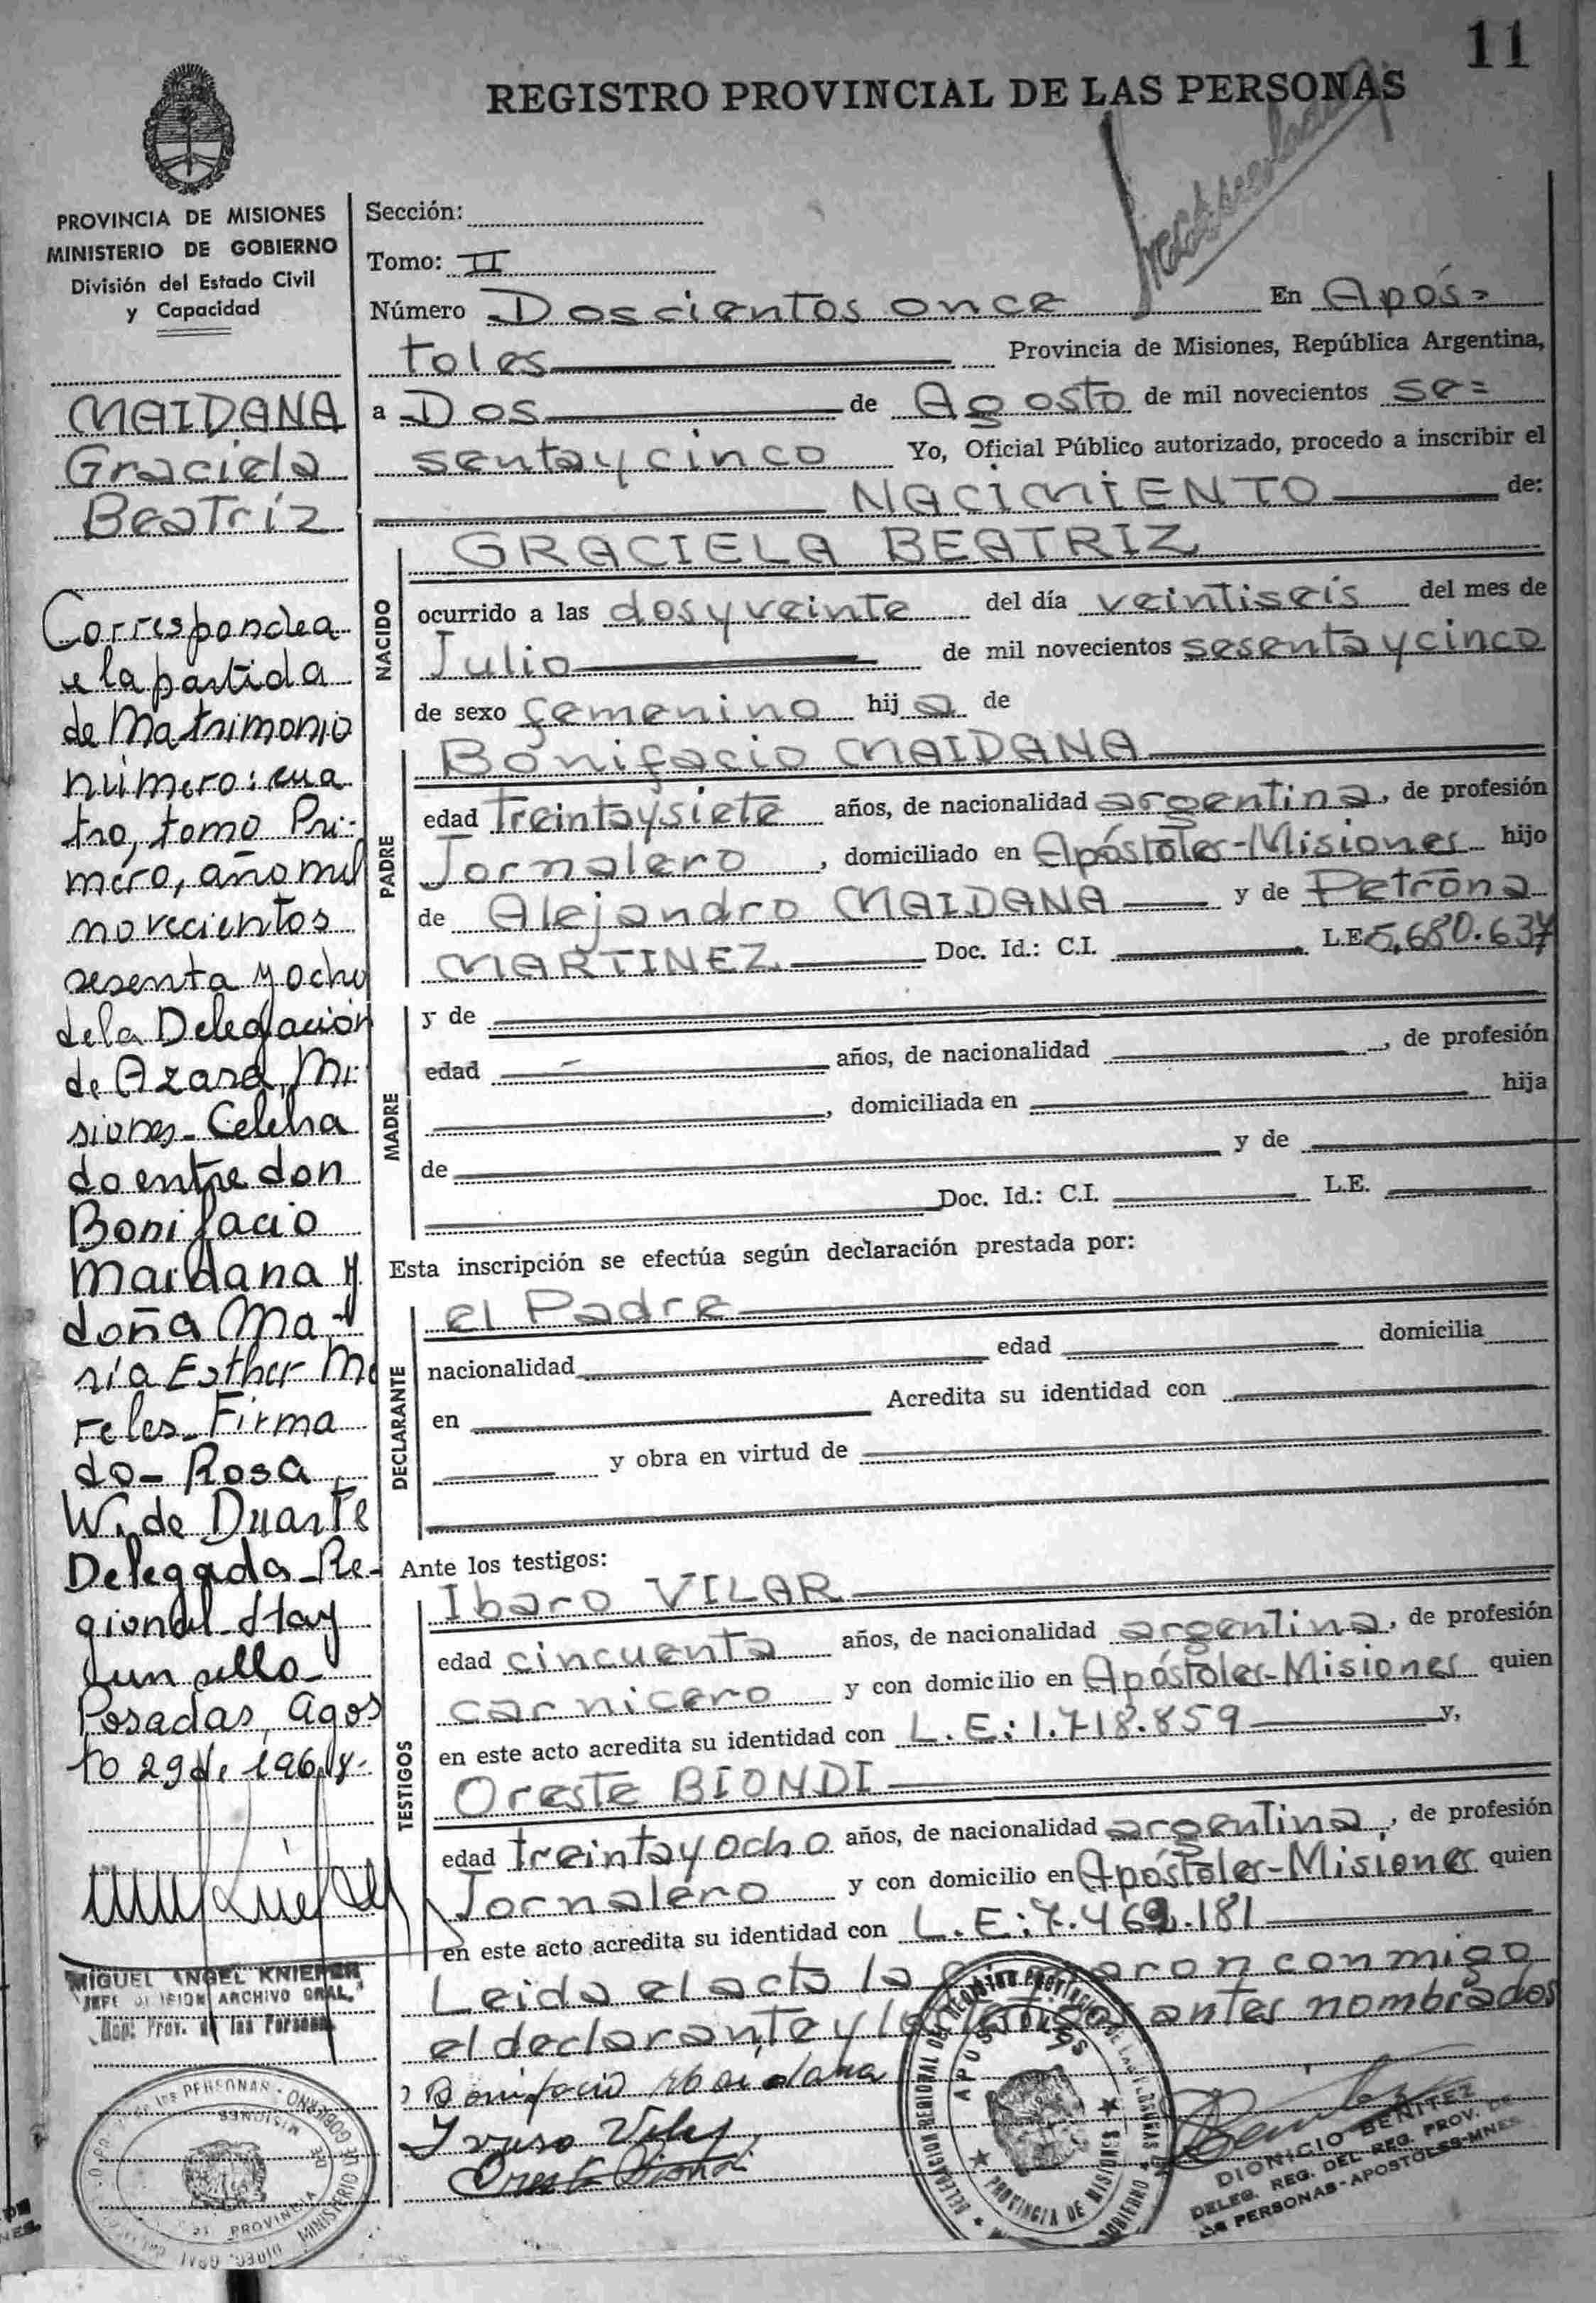 11
REGISTRO PROVINCIAL DE LAS PERSONAS
PROVINCIA DE MISIONES
MINISTERIO DE GOBIERNO
División del Estado Civil
y Capacidad
MAIDANA
Graciela
Beatríz
Corresponde a
la partida
de Matrimonio
número: cua
tro, tomo Pri-
mero, año mil
novecientos
sesenta y ocho
de la Delegación
de Azara, Mi-
siones - Celebra
do entre don
Bonifacio
Maidana y
doña Ma-
ría Esther Me
reles - Firma
do - Rosa
W. de Duarte
Delegada Re-
gional - Hay
un sello -
Posadas, Agos
to 29 de 1968.-
MIGUEL ANGEL KNIEPER
JEFE DIVISION ARCHIVO GRAL.
Reg. Prov. de las Personas
Sección:
Tomo: II
Número Doscientos once En Após=
toles Provincia de Misiones, República Argentina,
a Dos de Agosto de mil novecientos se=
senta y cinco Yo, Oficial Público autorizado, procedo a inscribir el
NACIMIENTO de:
NACIDO
GRACIELA BEATRIZ
ocurrido a las dos y veinte del día veintiseis del mes de
Julio de mil novecientos sesenta y cinco
de sexo femenino hij a de
PADRE
Bonifacio MAIDANA
edad treinta y siete años, de nacionalidad argentina, de profesión
Jornalero, domiciliado en Apóstoles-Misiones hijo
de Alejandro MAIDANA y de Petrona
MARTINEZ Doc. Id.: C.I. L.E. 5.680.637
MADRE
y de
edad años, de nacionalidad , de profesión
, domiciliada en hija
de y de
Doc. Id.: C.I. L.E.
Esta inscripción se efectúa según declaración prestada por:
DECLARANTE
el Padre
nacionalidad edad domicilia
en Acredita su identidad con
y obra en virtud de
Ante los testigos:
TESTIGOS
Ibaro VILAR
edad cincuenta años, de nacionalidad argentina, de profesión
carnicero y con domicilio en Apóstoles-Misiones quien
en este acto acredita su identidad con L.E: 1.718.859 y,
Oreste BIONDI
edad treinta y ocho años, de nacionalidad argentina, de profesión
Jornalero y con domicilio en Apóstoles-Misiones quien
en este acto acredita su identidad con L.E: 7.469.181
Leida el acta la firmaron conmigo
el declarante y los testigos antes nombrados
Bonifacio Maidana
Oreste Biondi
DELEGACION REGIONAL DEL REGISTRO PROVINCIAL DE LAS PERSONAS
APOSTOLES
PROVINCIA DE MISIONES
DIONICIO BENITEZ
DELEG. REG. DEL REG. PROV. DE
LAS PERSONAS-APOSTOLES-MNES.